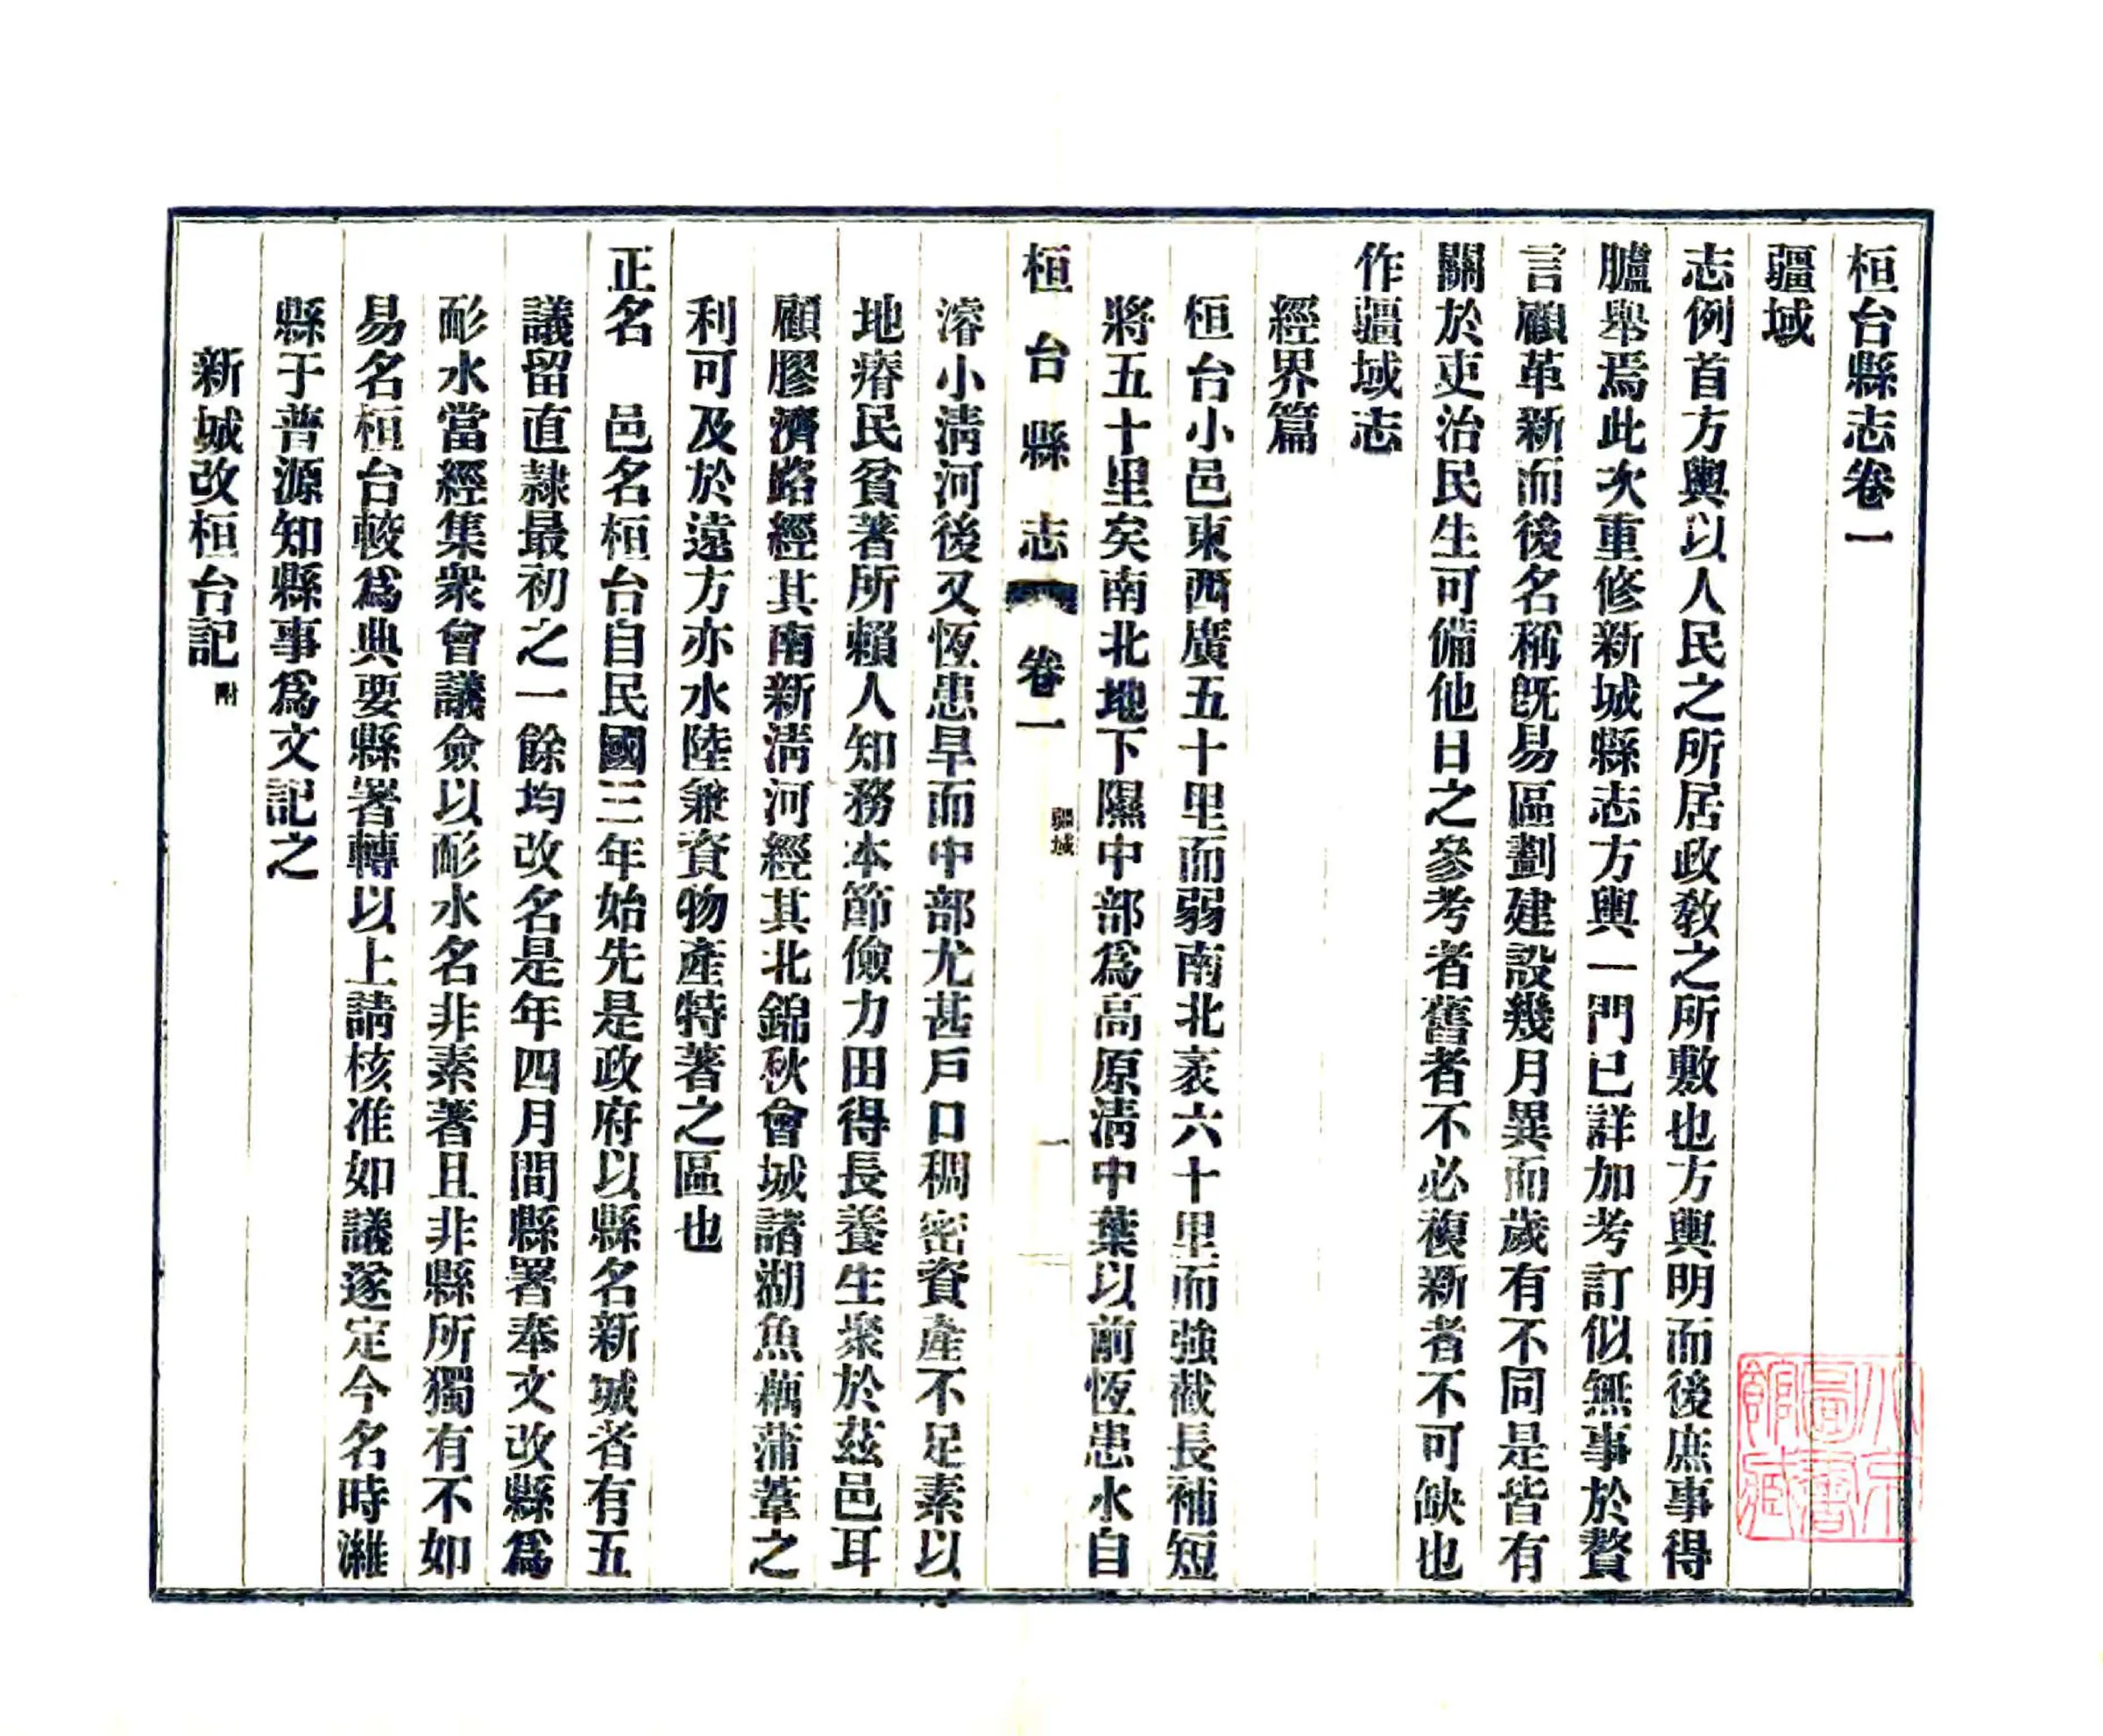 桓台縣志卷一
疆域
志例首方輿以人民之所居政敎之所敷也方輿明而後庶事得
臚舉焉此次重修新城縣志方輿一門已詳加考訂似無事於贅
言顧革新而後名稱旣易區劃建設幾月異而歲有不同是皆有
關於吏治民生可備他日之參考者舊者不必複新者不可缺也
作疆域志
經界篇
恒台小邑東西廣五十里而弱南北袤六十里而強截長補短
將五十里矣南北地下隰中部爲高原淸中葉以前恆患水自
桓台縣志 卷一 疆域 一
濬小淸河後又恆患旱而中部尤甚戶口稠密資產不足素以
地瘠民貧著所賴人知務本節儉力田得長養生聚於茲邑耳
顧膠濟路經其南新淸河經其北錦秋會城諸湖魚藕蒲葦之
利可及於遠方亦水陸兼資物產特著之區也
正名 邑名桓台自民國三年始先是政府以縣名新城者有五
議留直隷最初之一餘均改名是年四月間縣署奉文改縣爲
耏水當經集衆會議僉以耏水名非素著且非縣所獨有不如
易名桓台較爲典要縣署轉以上請核准如議遂定今名時濰
縣于普源知縣事爲文記之
新城改桓台記 附